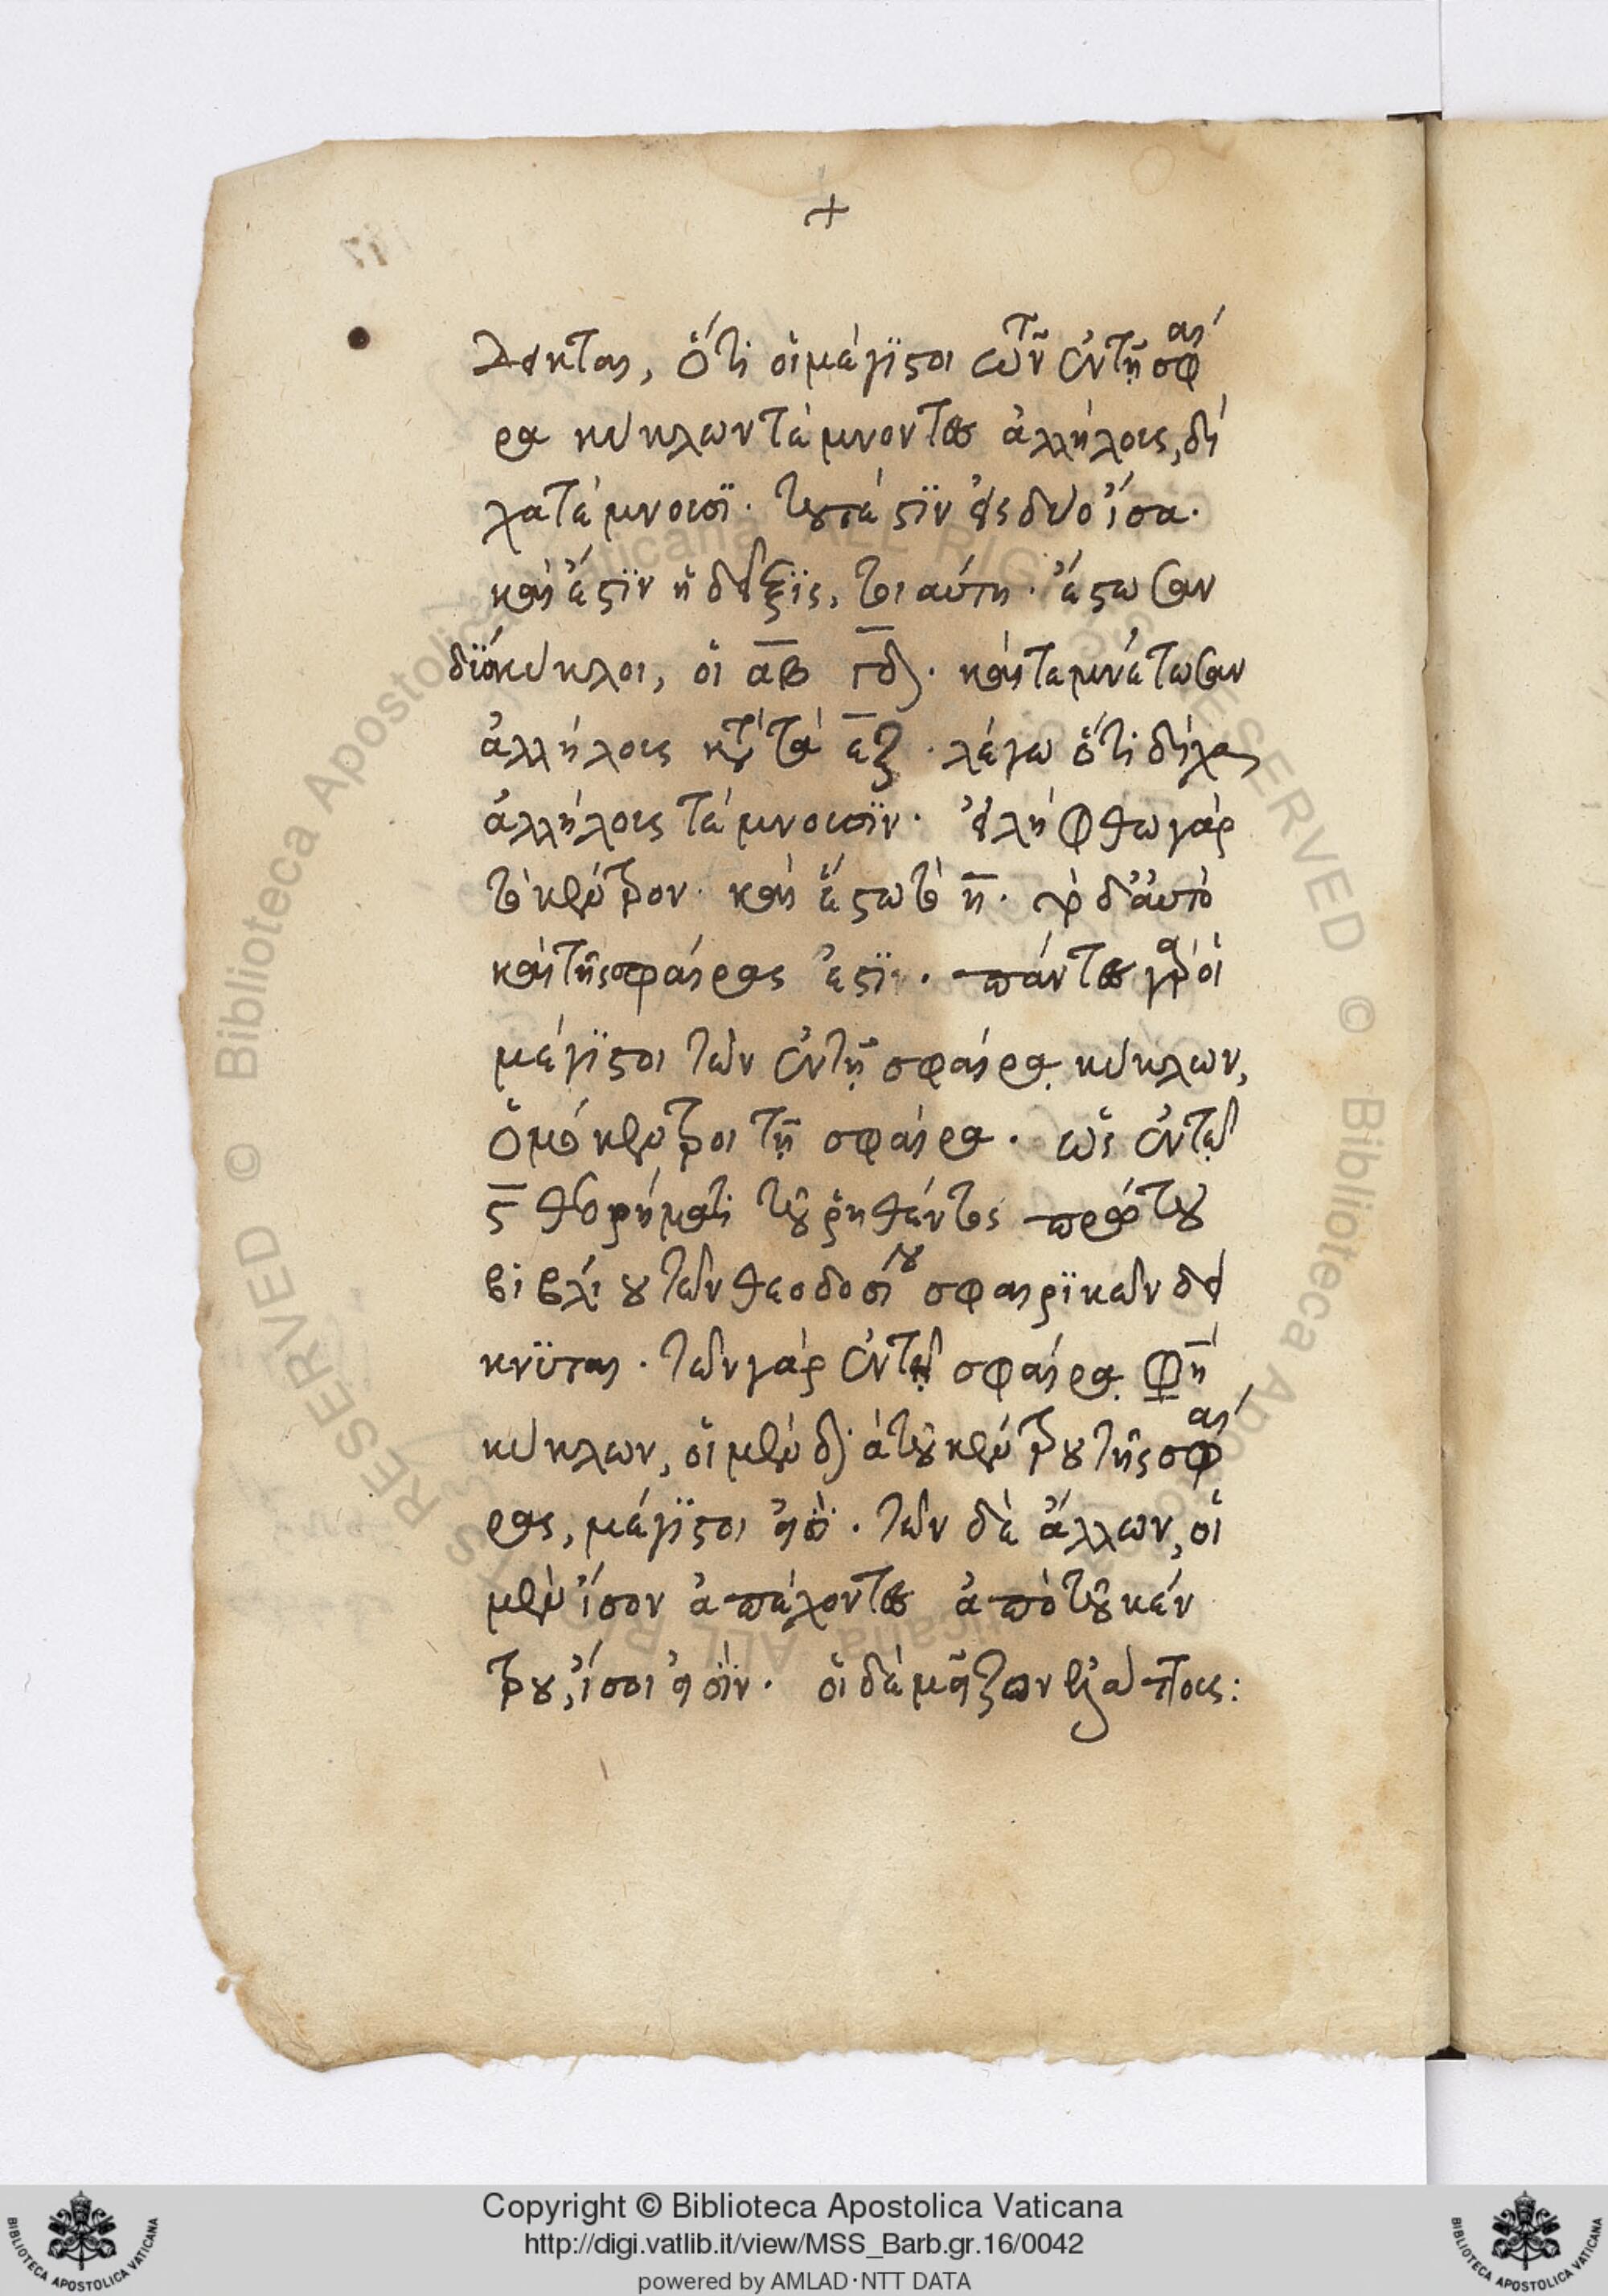 +
δείκται, ὅτι οἱ μέγιστοι τῶν ἐν τῇ σφαί
ρα κύκλων τέμνοντες ἀλλήλους, δί
χα τέμνουσι. τουτέστιν εἰς δύο ἴσα.
καὶ ἔστιν ἡ δεῖξις, τοιαύτη. ἔστωσαν
δύο κύκλοι, οἱ αβ γδ. καὶ τεμνέτωσαν
ἀλλήλους κατὰ τὰ εζ. λέγω ὅτι δίχα
ἀλλήλους τέμνουσιν. εἰλήφθω γὰρ
τὸ κέντρον. καὶ ἔστω τὸ η. τὸ δ' αὐτὸ
καὶ τῆς σφαίρας ἐστίν. πάντες γὰρ οἱ
μέγιστοι τῶν ἐν τῇ σφαίρᾳ κύκλων,
ὁμόκεντροι τῇ σφαίρα. ὡς ἐν τῷ
ϛ θεωρήματι τοῦ ῥηθέντος πρώτου
βιβλίου τῶν θεοδοσίου σφαιρικῶν δεί
κνυται. τῶν γὰρ ἐν τῇ σφαίρᾳ φησὶ
κύκλων, οἱ μὲν διὰ τοῦ κέντρου τῆς σφαί
ρας, μέγιστοι εἰσὶ. τῶν δὲ ἄλλων, οἱ
μὲν ἴσον ἀπέχοντες ἀπὸ τοῦ κέν
τρου, ἴσοι εἰσίν. οἱ δὲ μεῖζον ἐλάττους:
Copyright © Biblioteca Apostolica Vaticana
http://digi.vatlib.it/view/MSS_Barb.gr.16/0042
powered by AMLAD·NTT DATA
BIBLIOTECA APOSTOLICA VATICANA
BIBLIOTECA APOSTOLICA VATICANA
© Biblioteca Apostolica Vaticana ALL RIGHTS RESERVED
© Biblioteca Apostolica Vaticana ALL RIGHTS RESERVED